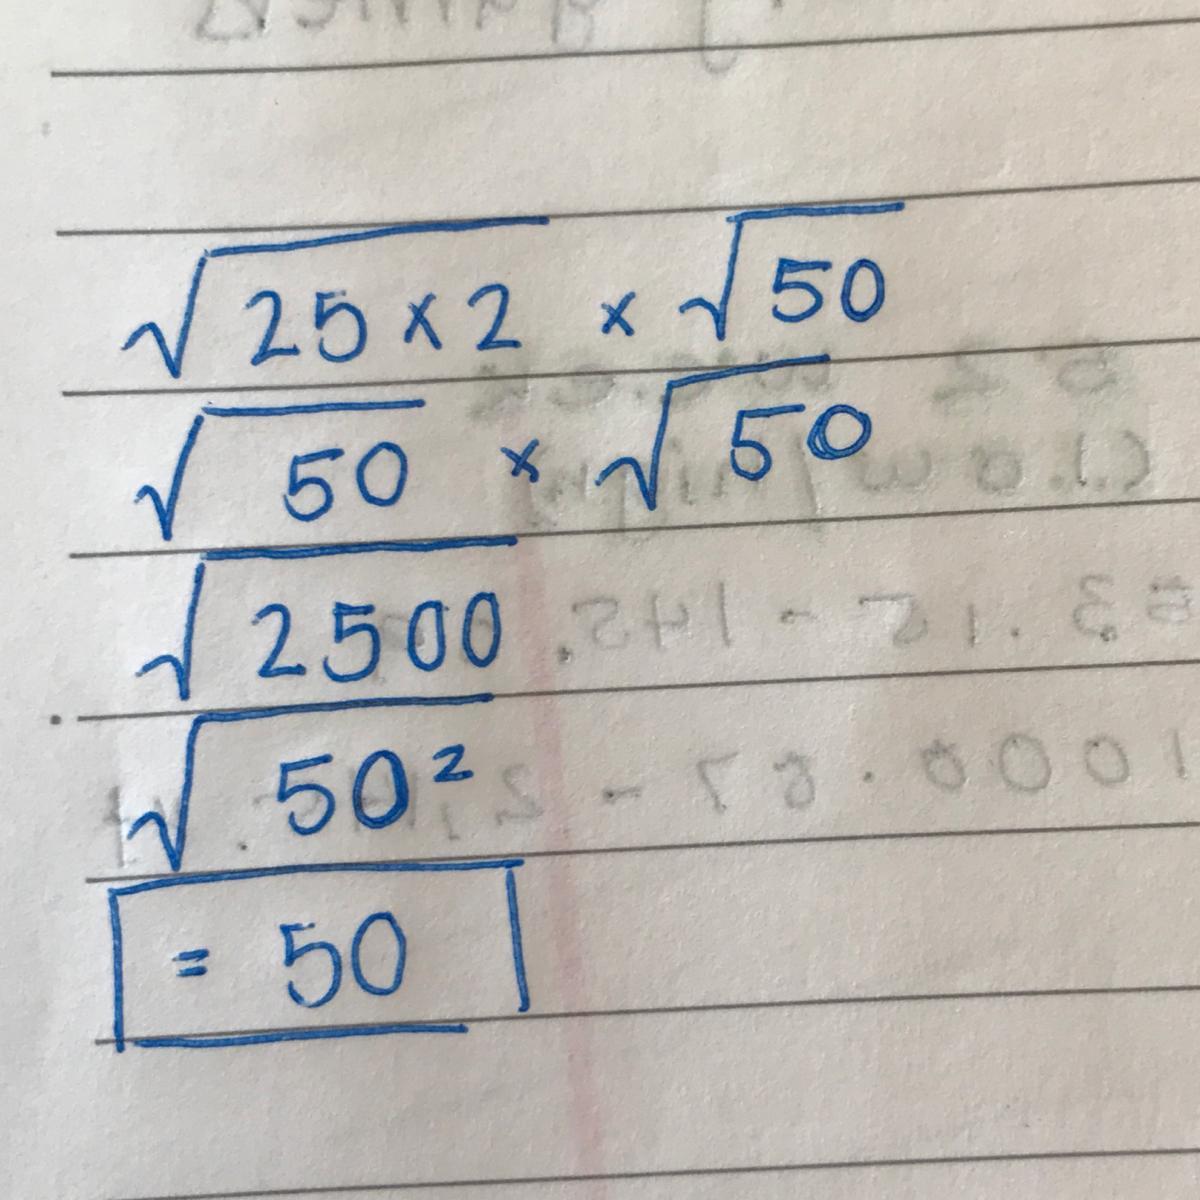 √25 × 2 × √50
√50 × √50
√2500
√50²
= 50